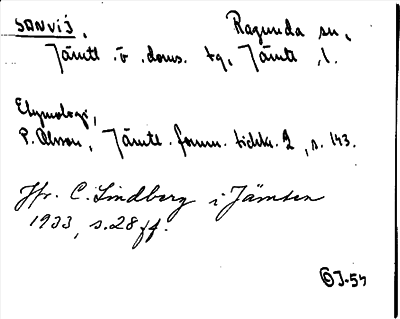 SANVIJ.
Ragunda sn.
Jämtl. ö. doms. tg, Jämtl. l.
Etymologi,
P. Olsson, Jämtl. fornm. tidskr. 2, s. 143.
Jfr. C. Lindberg i Jämten
1933, s. 28 ff.
J-54